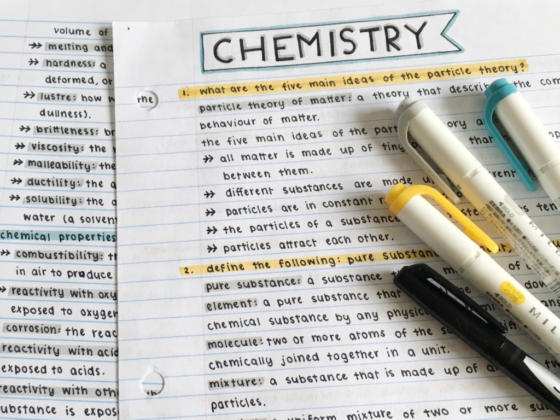 volume of
→ melting and
→ hardness: a
deformed, or
→ lustre: how
dullness).
→ brittleness:
→ viscosity: the
→ malleability: the
→ ductility: the a
→ solubility: the
water (a solven
chemical properties
→ combustibility: th
in air to produce
→ reactivity with oxy
exposed to oxygen
corrosion: the reac
reactivity with acid
exposed to acids.
reactivity with oth
substance is expos
the
CHEMISTRY
1. what are the five main ideas of the particle theory?
particle theory of matter: a theory that describ the com
behaviour of matter.
the five main ideas of the part ory a
→ all matter is made up of tiny
between them.
→ different substances are made u
→ particles are in constant
→ the particles of a substanc
→ particles attract each other.
2. define the following: pure substan
pure substance: a substance
element: a pure substance that
chemical substance by any physic
molecule: two or more atoms of the
chemically joined together in a unit.
mixture: a substance that is made up of a
particles.
uniform mixture of two or more su